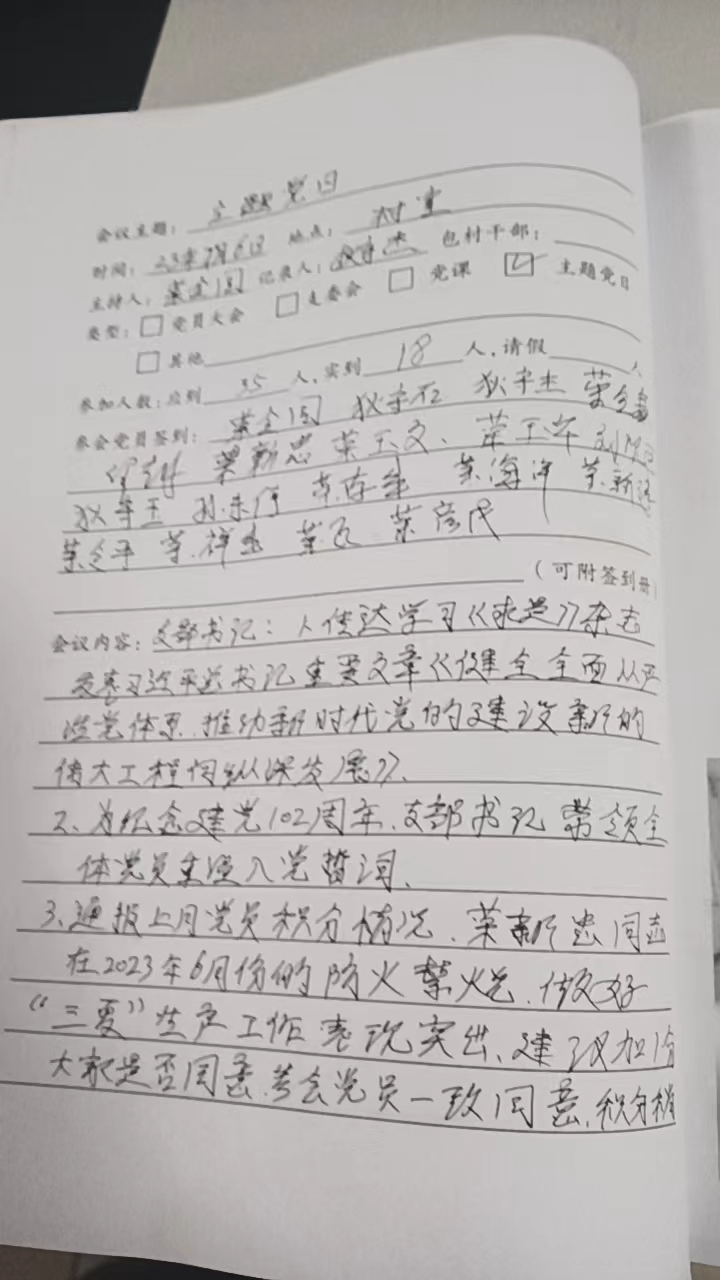 会议主题：主题党日
时间：23年7月6日 地点：村室
主持人：荣全国 记录人： 包村干部：
类型：□ 党员大会 □ 支委会 □ 党课 ☑ 主题党日
□ 其他
参加人数：应到 35 人，实到 18 人，请假 人
参会党员签到：荣全国 狄宇石 狄宇杰
荣新忠 荣玉文、荣玉华
狄宇玉 荣海洋 荣新
荣彦民
（可附签到册）
会议内容：支部书记：1、传达学习《求是》杂志
发表习近平总书记重要文章《健全全面从严
治党体系 推动新时代党的建设新的
伟大工程向纵深发展》、
2、为纪念建党102周年、支部书记带领全
体党员重温入党誓词、
3、通报上月党员积分情况、荣新忠同志
在2023年6月份的防火禁火、做好
“三夏”生产工作表现突出、建议加1分
大家是否同意、参会党员一致同意、积分情